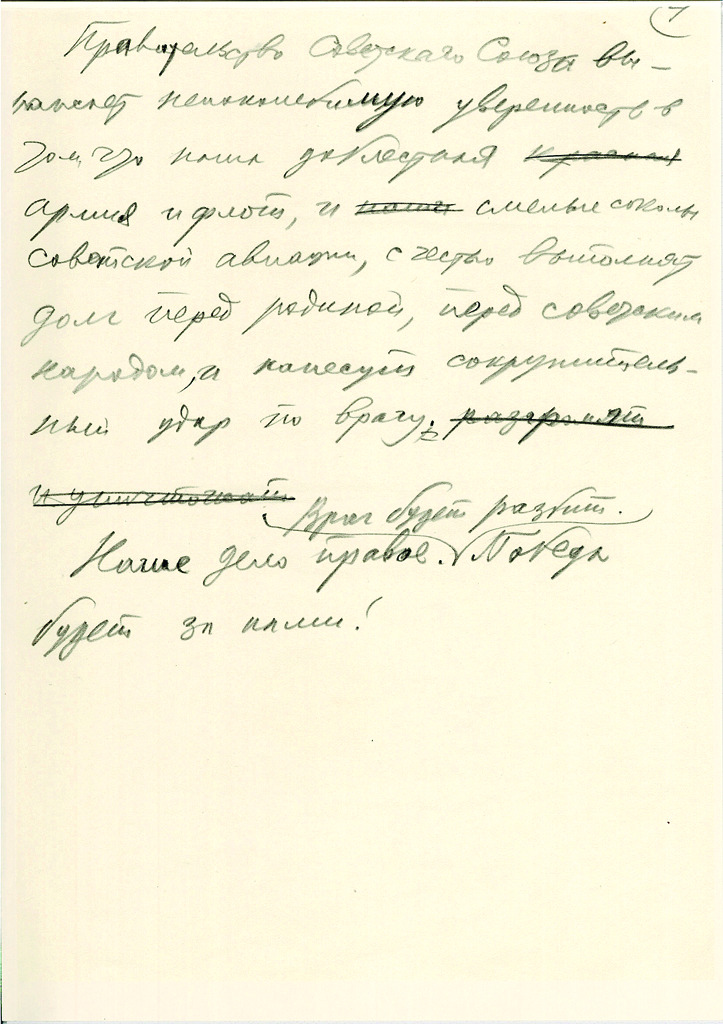 7
Правительство Советского Союза вы-
ражает непоколебимую уверенность в
том, что наши доблестная красная
армия и флот, и наши смелые соколы
советской авиации, с честью выполнят
долг перед родиной, перед советским
народом, и нанесут сокрушитель-
ный удар по врагу. разгромят
и уничтожат
Враг будет разбит.
Наше дело правое. Победа
будет за нами!